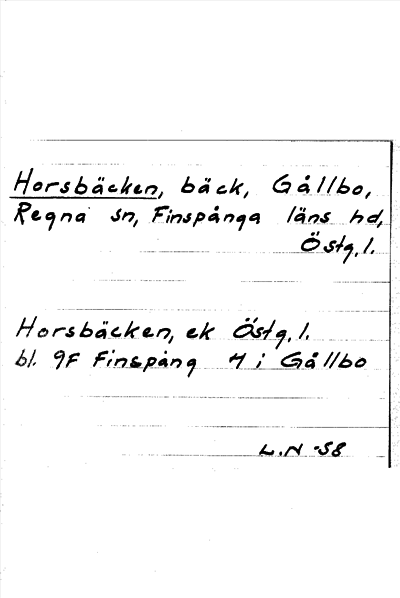 Horsbäcken, bäck, Gållbo,
Regna sn, Finspånga läns hd,
Östg.l.
Horsbäcken, ek Östg.l.
bl. 9F Finspång 4 i Gållbo
L.N -58